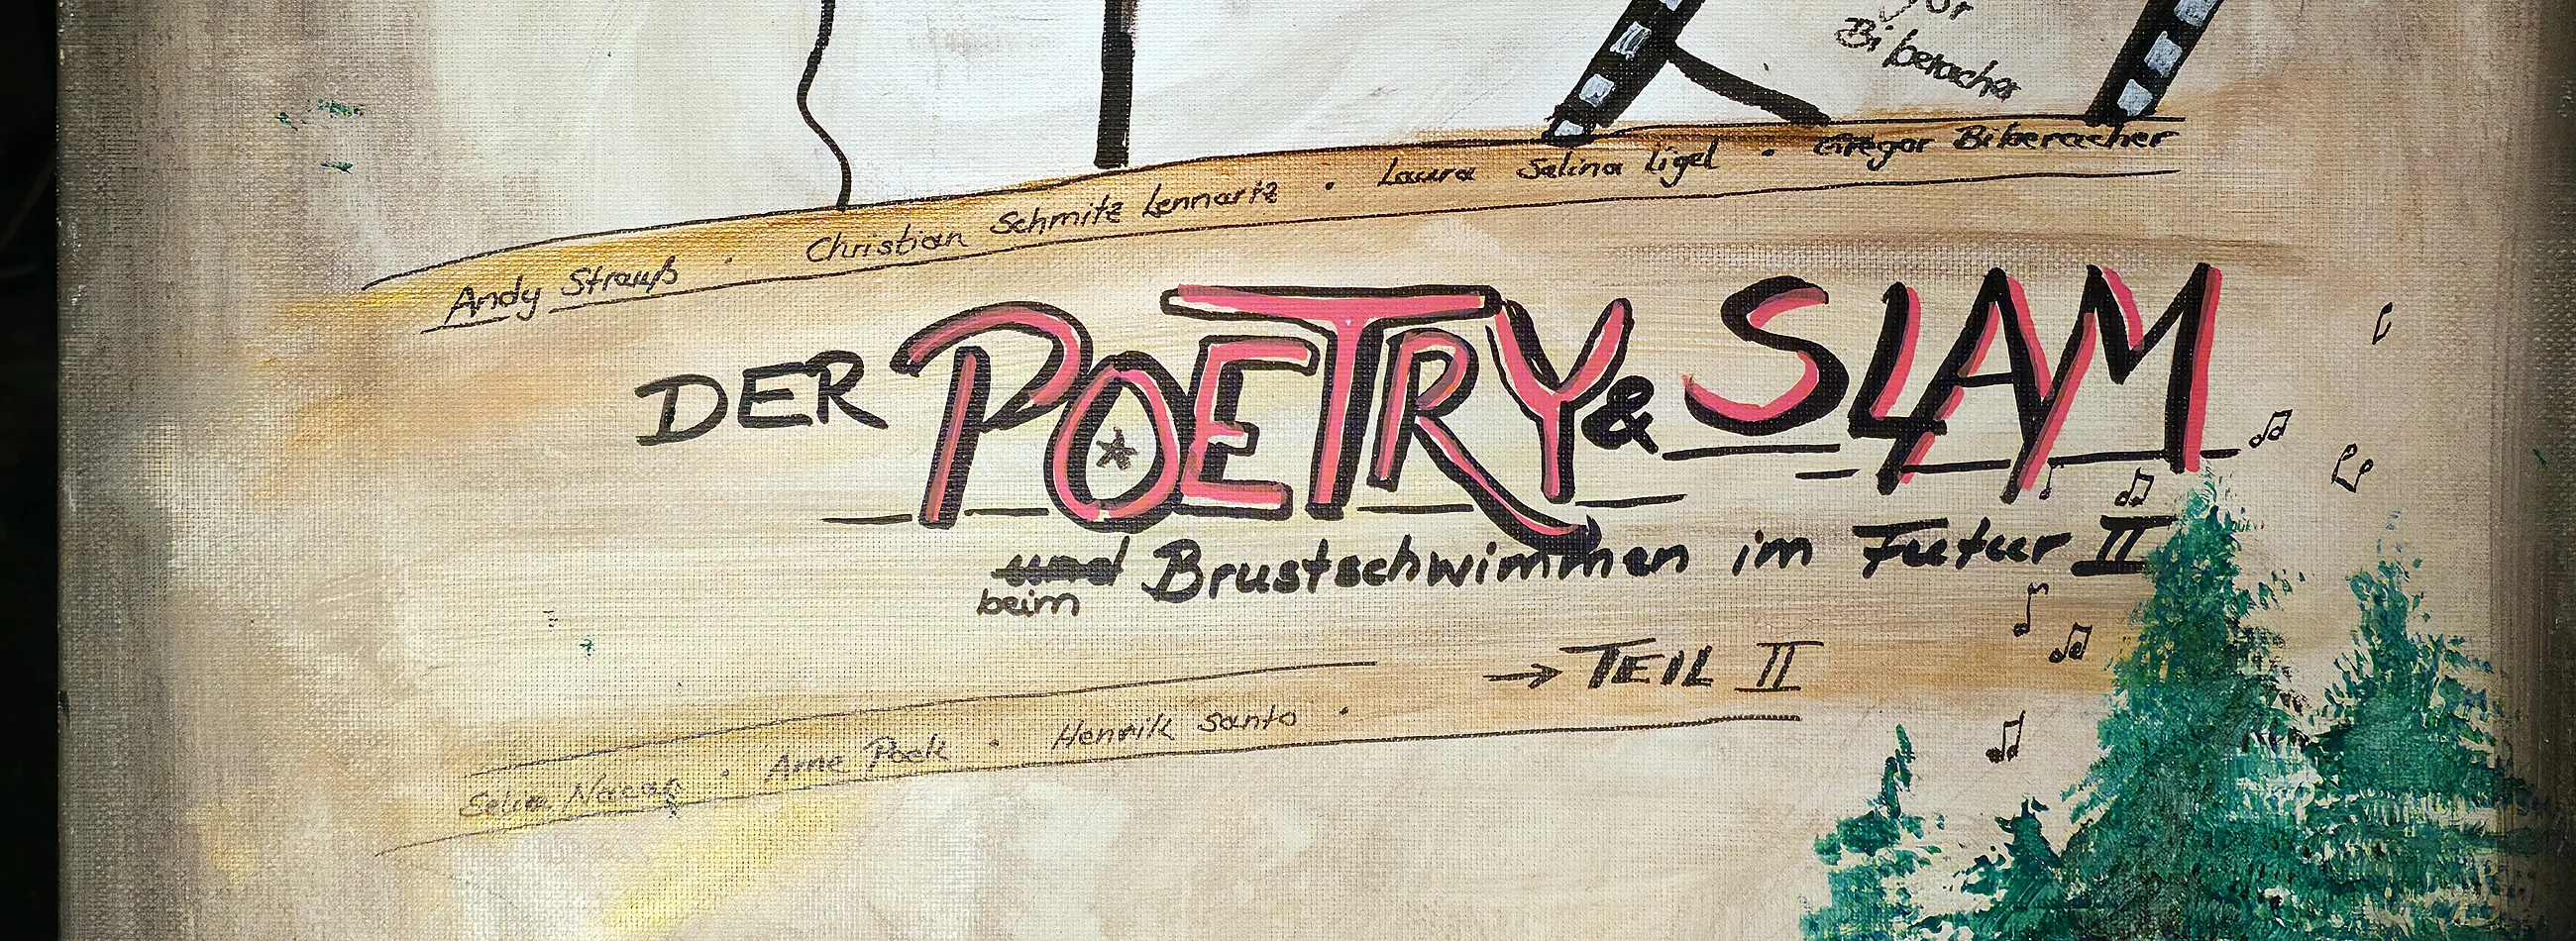 Biberacher
Andy Strauß · Christian Schmitz Lennartz · Laura Selina Ligel · Gregor Biberacher
DER POETRY & SLAM
und Brustschwimmen im Futur II
beim
→ TEIL II
Arne Poek · Henrik Santo ·